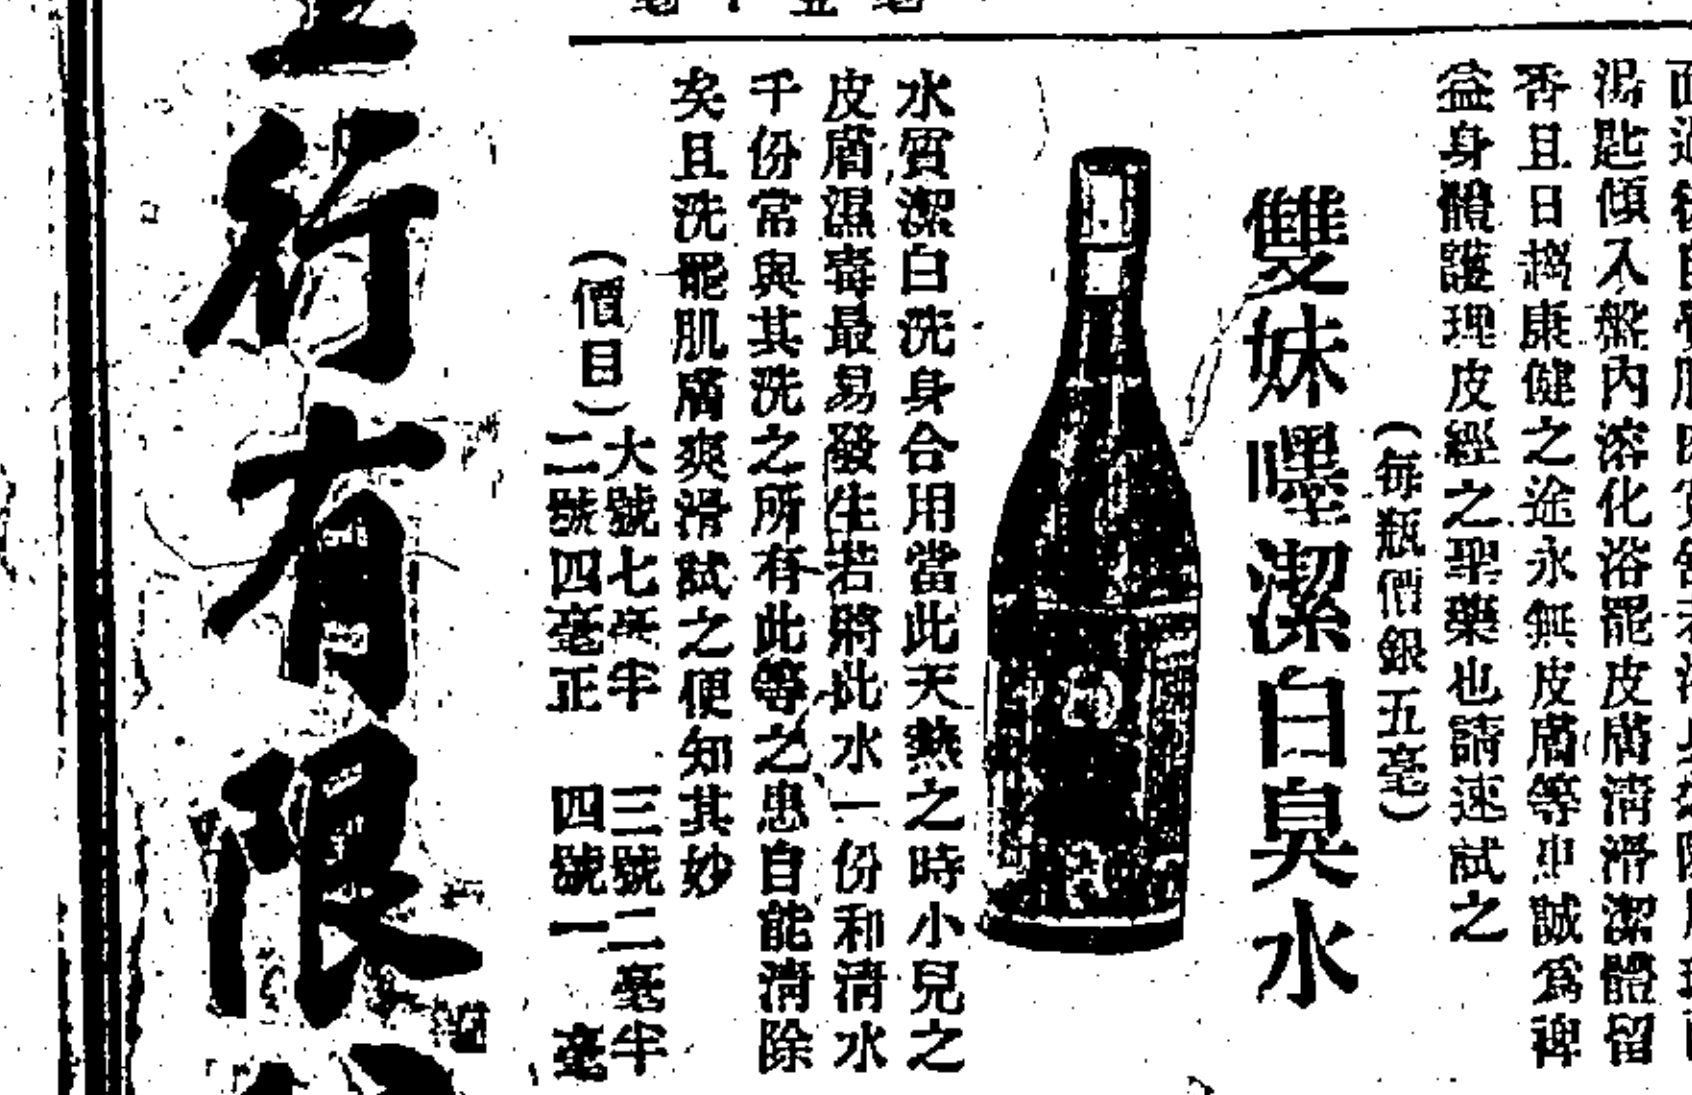 湯匙傾入盤內溶化浴罷皮膚清滑潔體留
香且日趨康健之途永無皮膚等患誠為裨
益身體護理皮經之聖藥也請速試之
(每瓶價銀五毫)
雙妹嘿潔白臭水
水質潔白洗身合用當此天熱之時小兒之
皮膚濕毒最易發生若將此水一份和清水
千份常與其洗之所有此等之患自能清除
矣且洗罷肌膚爽滑試之便知其妙
(價目)
大號七毫半 三號二毫半
二號四毫正 四號一毫
行有限